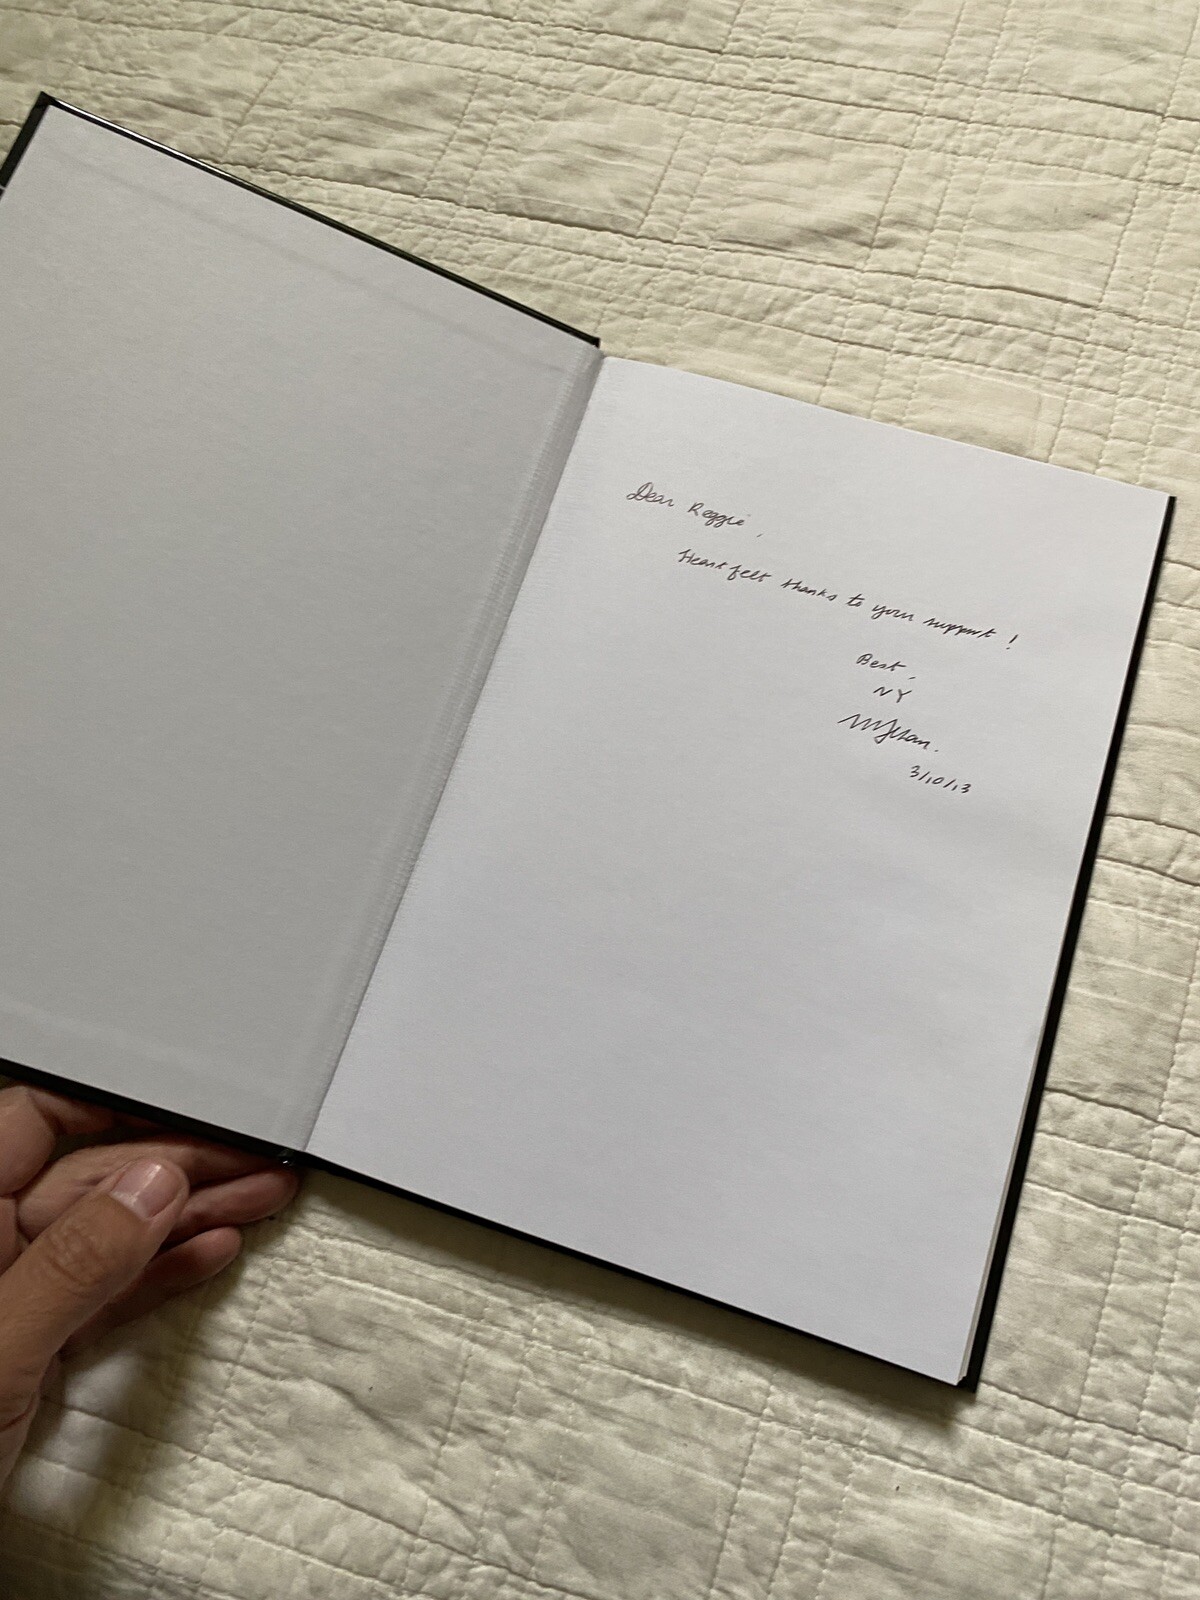 Dear Reggie,
Heartfelt thanks to your support!
Best,
NY
3/10/13